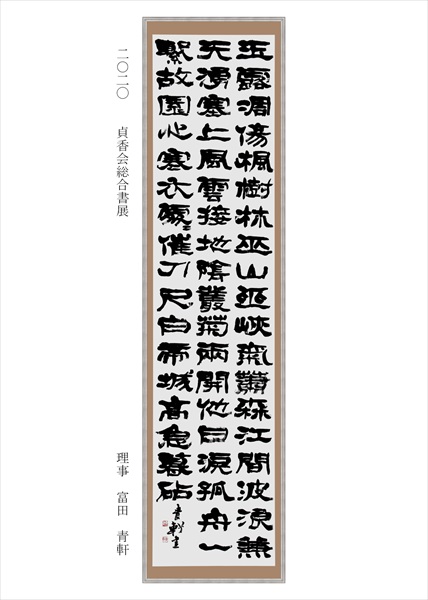 玉露凋傷楓樹林巫山巫峽氣蕭森江間波浪兼
天湧塞上風雲接地陰叢菊兩開他日淚孤舟一
繫故園心寒衣處〻催刀尺白帝城高急暮砧
青軒書
二〇二〇 貞香会総合書展
理事 富田 青軒